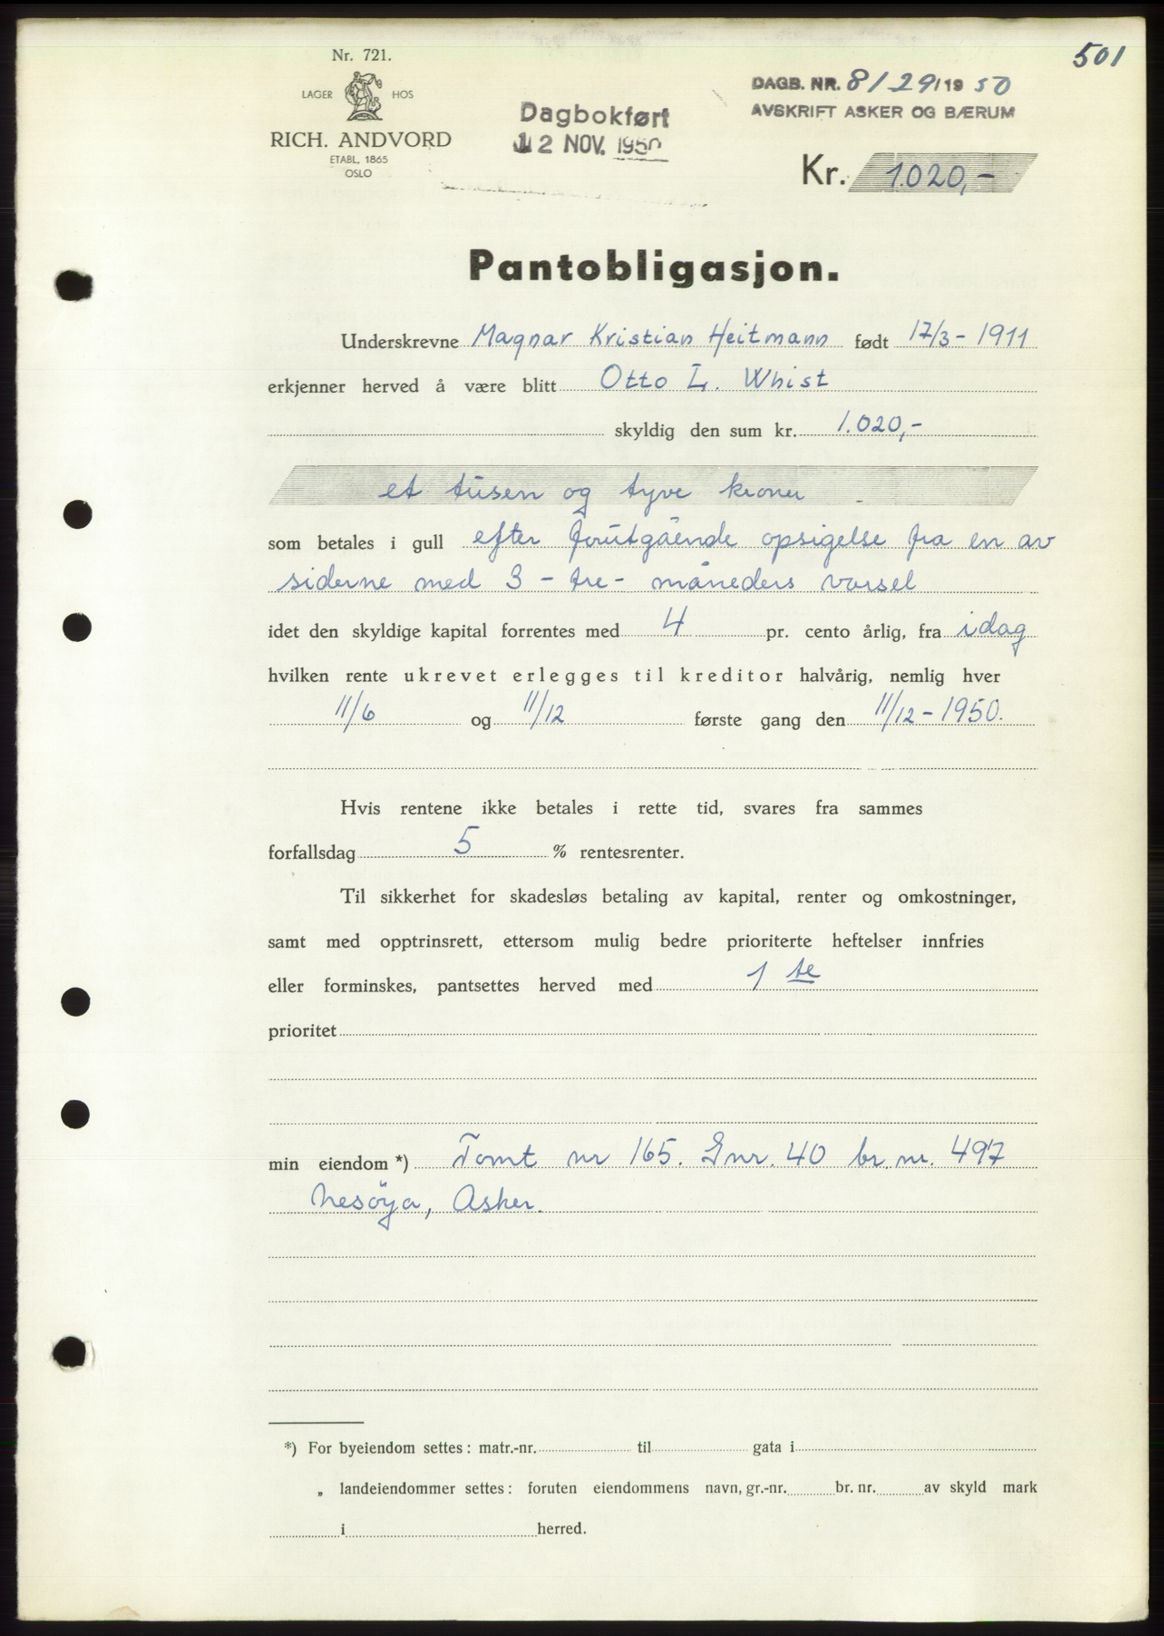 501
Nr. 721.
LAGER HOS
RICH. ANDVORD
ETABL. 1865
OSLO
Dagbokført
2 NOV. 1950
DAGB. NR. 8129/19 50
AVSKRIFT ASKER OG BÆRUM
Kr. 1.020,-
Pantobligasjon.
Underskrevne Magnar Kristian Heitmann født 17/3-1911
erkjenner herved å være blitt Otto L. Whist
skyldig den sum kr. 1.020,-
et tusen og tyve kroner
som betales i gull efter forutgående opsigelse fra en av
siderne med 3 - tre - måneders varsel
idet den skyldige kapital forrentes med 4 pr. cento årlig, fra idag
hvilken rente ukrevet erlegges til kreditor halvårig, nemlig hver
11/6 og 11/12 første gang den 11/12-1950.
Hvis rentene ikke betales i rette tid, svares fra sammes
forfallsdag 5 % rentesrenter.
Til sikkerhet for skadesløs betaling av kapital, renter og omkostninger,
samt med opptrinsrett, ettersom mulig bedre prioriterte heftelser innfries
eller forminskes, pantsettes herved med 1 te
prioritet
min eiendom *) Tomt nr 165. Gnr. 40 br. nr. 497
Nesøya, Asker.
*) For byeiendom settes: matr.-nr. til gata i
„ landeiendommer settes: foruten eiendommens navn, gr.-nr. br. nr. av skyld mark
i herred.